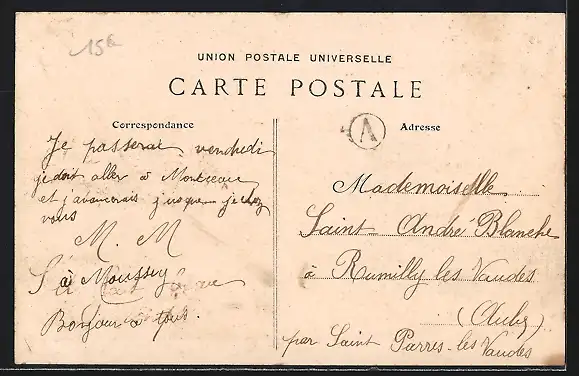 15€
UNION POSTALE UNIVERSELLE
CARTE POSTALE
Correspondance
Je passerai vendredi
je doit aller à Montceau
et j'avancerais jusque je chez
vous
M. M
à Moussey
Bonjour à tous.
A
Adresse
Mademoiselle
Saint André Blanche
à Rumilly les Vaudes
(Aube)
par Saint Parres-les Vaudes